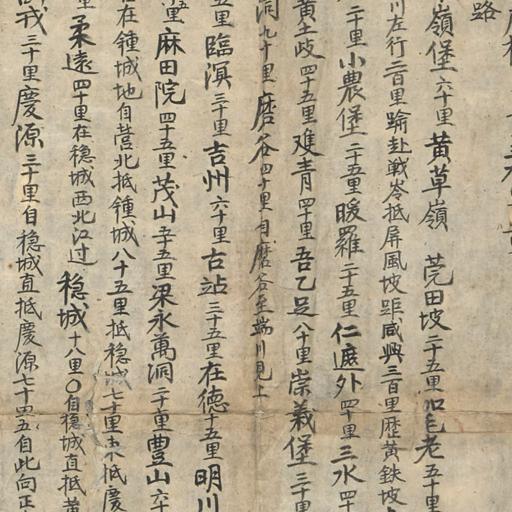 路
嶺堡六十里黄草嶺 莞田坡二十五里加乇老五十里
川左行二百里踰赴戦岺抵屏風坡距咸興三百里歴黄鉄坡
二十里小農堡二十五里暖羅二十五里仁遮外四十里三水四十
黄土岐四十五里难青四十里吾乙足八十里崇義堡三十里
洞九十里磨谷四十里自磨谷至端川見上
五里臨溟三十里吉州六十里古站三十五里在德十五里明川
里麻田院四十五里茂山五十五里梁永萬洞二十里豊山六十
在鍾城地自营北抵鍾城八十五里抵穏城七十里東抵慶
里柔遠四十里在穏城西北江过 穏城十八里〇自穏城直抵黄
戎三十里慶源三十里自穏城直抵慶源七十四五自此向正